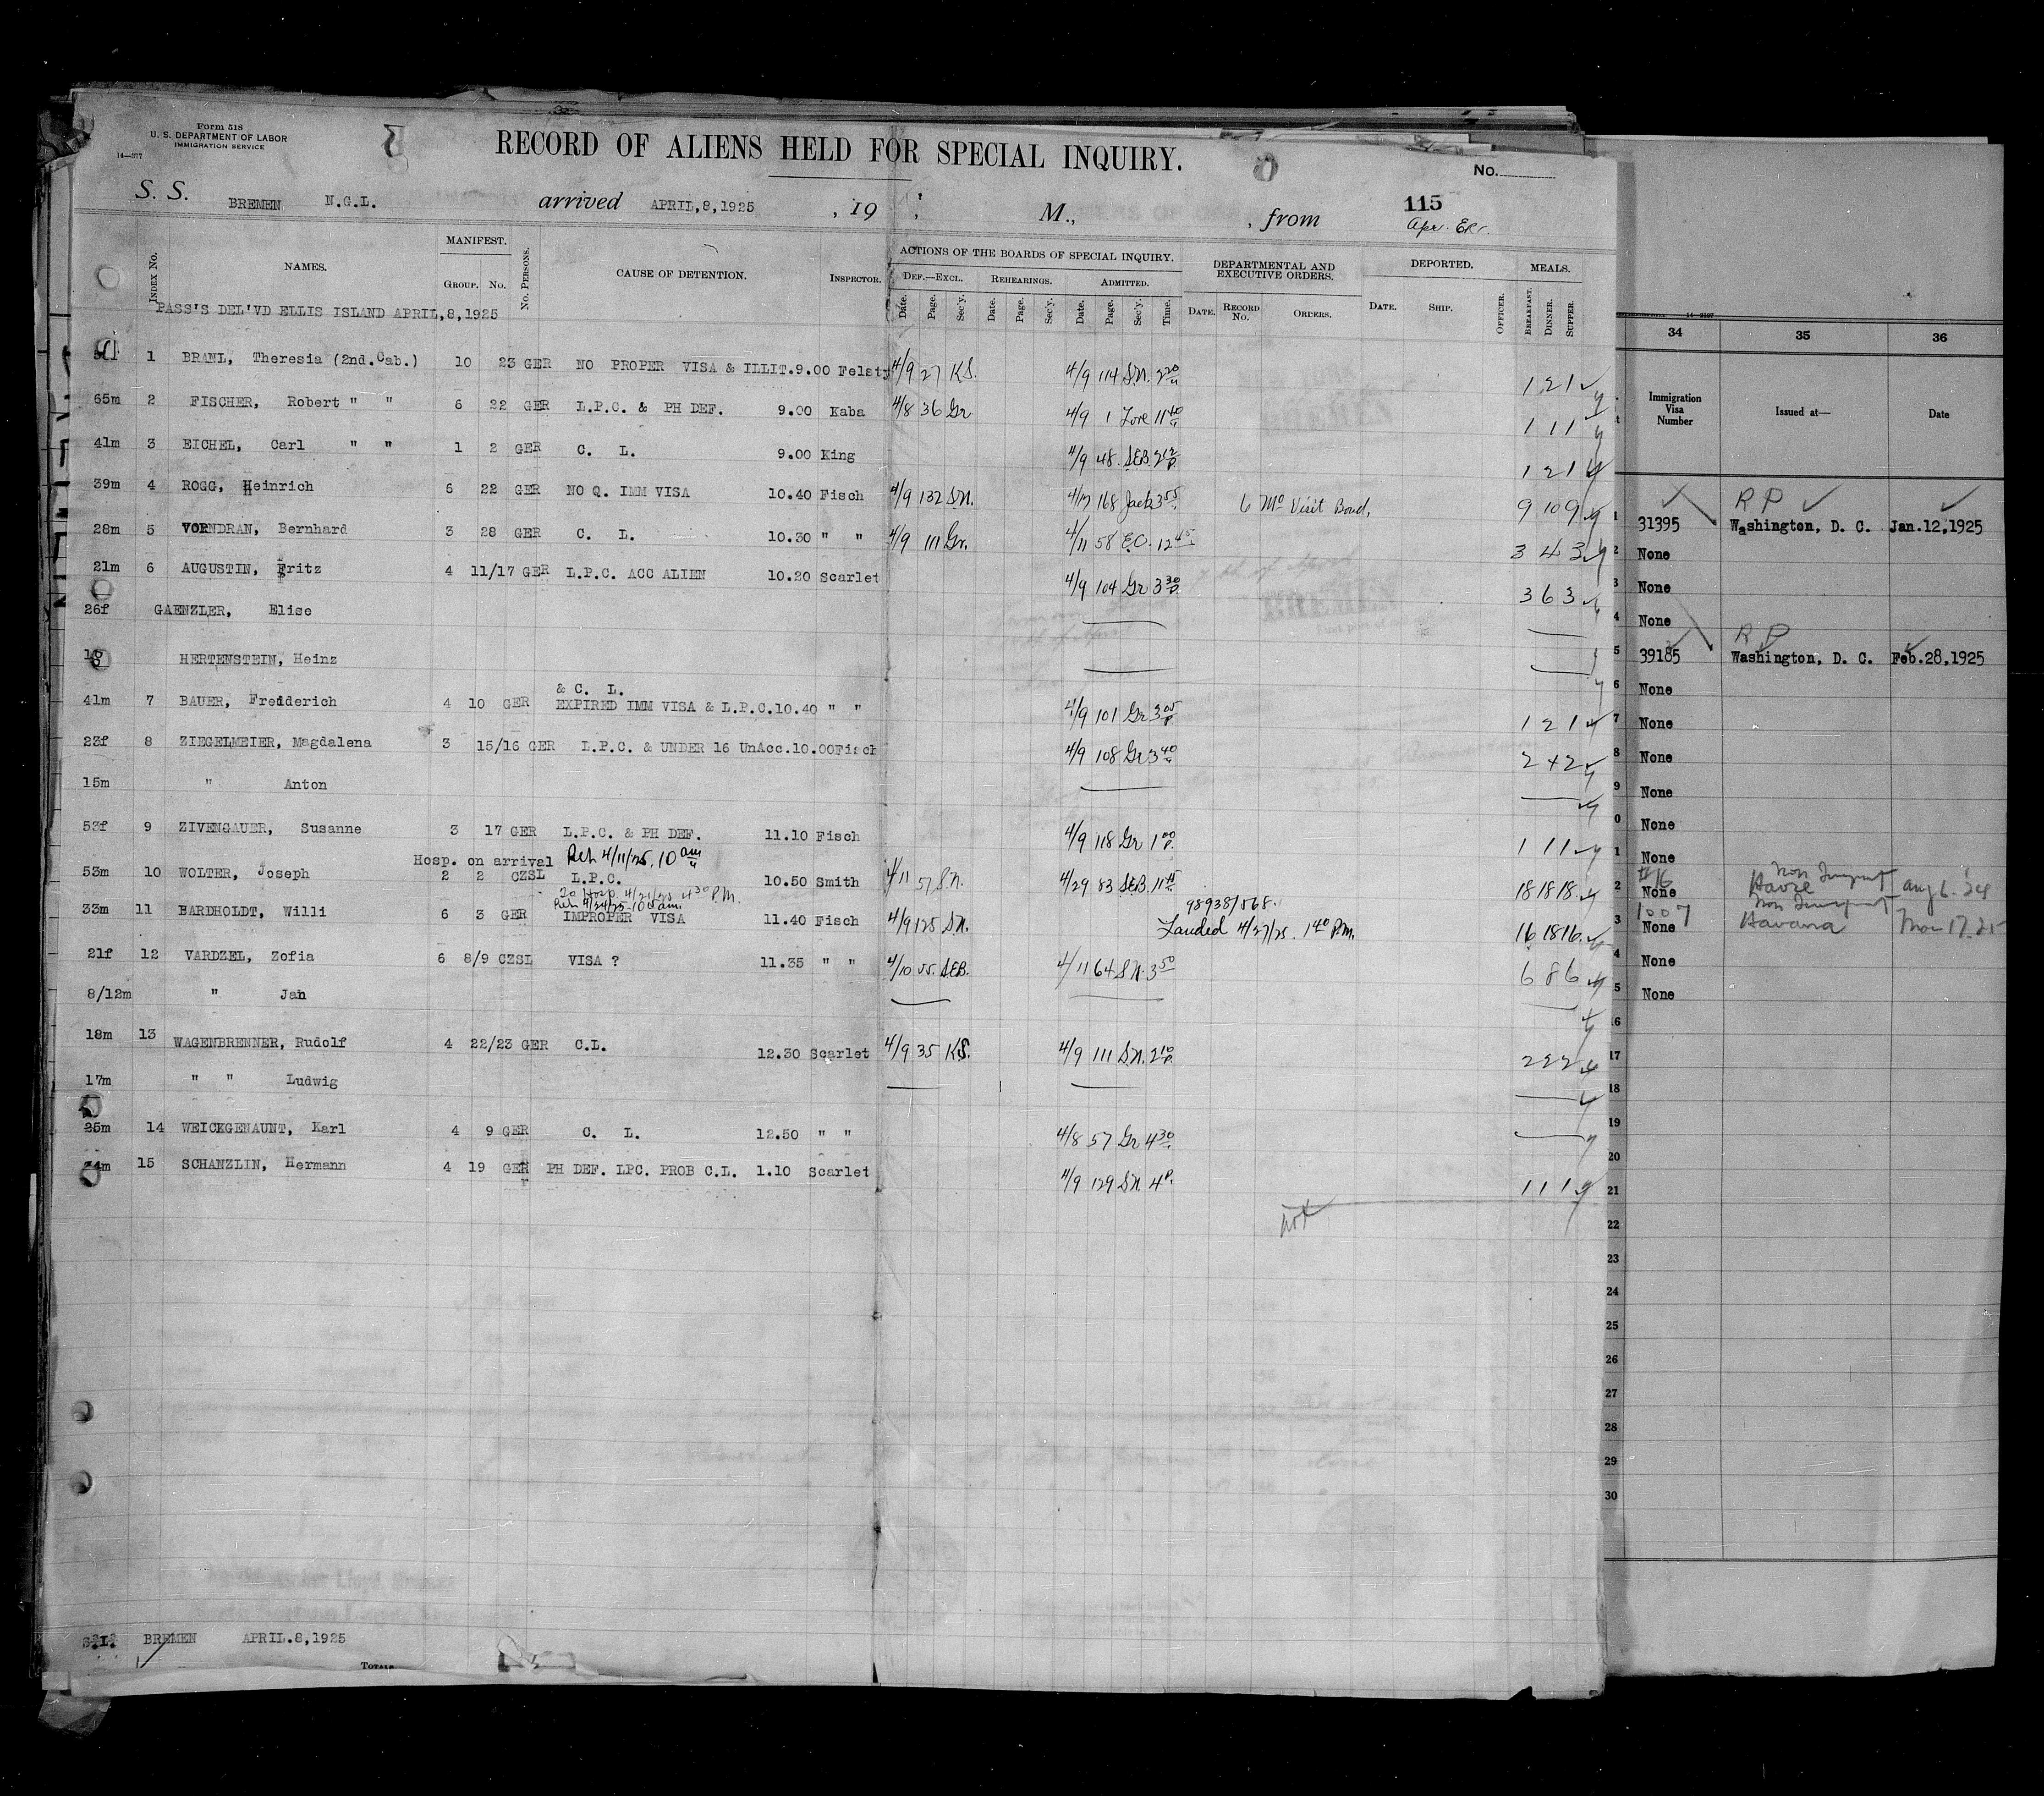 Form 518
U. S. DEPARTMENT OF LABOR
IMMIGRATION SERVICE
14—377
RECORD OF ALIENS HELD FOR SPECIAL INQUIRY.
No.
S. S. BREMEN N.G.L. arrived APRIL,8,1925 , 19 , M., , from 115
Apr.
INDEX No. NAMES. MANIFEST. GROUP. No. No. PERSONS. CAUSE OF DETENTION. INSPECTOR. ACTIONS OF THE BOARDS OF SPECIAL INQUIRY. DEPARTMENTAL AND EXECUTIVE ORDERS. DEPORTED. MEALS.
DEF.—EXCL. REHEARINGS. ADMITTED.
Date. Page. Sec'y. Date. Page. Sec'y. Date. Page. Sec'y. Time. DATE. RECORD No. ORDERS. DATE. SHIP. OFFICER. BREAKFAST. DINNER. SUPPER.
PASS'S DEL'VD ELLIS ISLAND APRIL,8,1925
1 BRANL, Theresia (2nd.Cab.) 10 23 GER NO PROPER VISA & ILLIT.9.00 Felsty 4/9 27 K.S. 4/9 114 S.N. 2 20 1 2 1
65m 2 FISCHER, Robert " " 6 22 GER L.P.C. & PH DEF. 9.00 Kaba 4/8 36 Gr 4/9 1 Fore 11 40 1 1 1
41m 3 EICHEL, Carl " " 1 2 GER C. L. 9.00 King 4/9 48 S.E.B. 2 12 P. 1 2 1
39m 4 ROGG, Heinrich 6 22 GER NO Q. IMM VISA 10.40 Fisch 4/9 132 S.N. 4/17 168 Jack 3 55 6 Mo Visit Bond, 9 10 9
28m 5 VORNDRAN, Bernhard 3 28 GER C. L. 10.30 " " 4/9 111 Gr. 4/11 58 E.O. 12 45 3 4 3
21m 6 AUGUSTIN, Fritz 4 11/17 GER L.P.C. ACC ALIEN 10.20 Scarlet 4/9 104 Gr 3 30 P. 3 6 3
26f GAENZLER, Elise
HERTENSTEIN, Heinz
& C. L.
41m 7 BAUER, Fredderich 4 10 GER EXPIRED IMM VISA & L.P.C.10.40 " " 4/9 101 Gr 3 05 P. 1 2 1
23f 8 ZIEGELMEIER, Magdalena 3 15/16 GER L.P.C. & UNDER 16 UnAcc.10.00Fisch 4/9 108 Gr 3 40 2 4 2
15m " Anton
53f 9 ZIVENGAUER, Susanne 3 17 GER L.P.C. & PH DEF. 11.10 Fisch 4/9 118 Gr 1 00 P. 1 1 1
Hosp. on arrival Reh 4/11/25, 10 am
53m 10 WOLTER, Joseph 2 2 CZSL L.P.C. 10.50 Smith 4/11 57 S.N. 4/29 83 S.E.B. 11 45 18 18 18
To Hosp 4/21/25 4 30 P.M.
Reh 4/24/25-10 am.
33m 11 BARDHOLDT, Willi 6 3 GER IMPROPER VISA 11.40 Fisch 4/9 125 S.N. 98938/568. Landed 4/27/25. 1 40 P.M. 16 18 16
21f 12 VARDZEL, Zofia 6 8/9 CZSL VISA ? 11.35 " " 4/10 55 S.E.B. 4/11 64 S.N. 3 50 6 8 6
8/12m " Jan
18m 13 WAGENBRENNER, Rudolf 4 22/23 GER C.L. 12.30 Scarlet 4/9 35 K.S. 4/9 111 S.N. 2 10 P. 2 2 2
17m " " Ludwig
25m 14 WEICKGENAUNT, Karl 4 9 GER C. L. 12.50 " " 4/8 57 Gr 4 30
15 SCHANZLIN, Hermann 4 19 GER PH DEF. LPC. PROB C.L. 1.10 Scarlet 4/9 129 S.N. 4 P. 1 1 1
S.I. BREMEN APRIL.8,1925
TOTALS
34 35 36
Immigration Visa Number Issued at— Date
R P
1 31395 Washington, D. C. Jan.12,1925
2 None
3 None
4 None
R P
5 39185 Washington, D. C. Feb.28,1925
6 None
7 None
8 None
9 None
0 None
1 None
#16 Non Immgrant
2 None Havre Aug 6. 24
1007 Non Immgrant
3 None Havana Nov 17.25
4 None
5 None
16
17
18
19
20
21
22
23
24
25
26
27
28
29
30